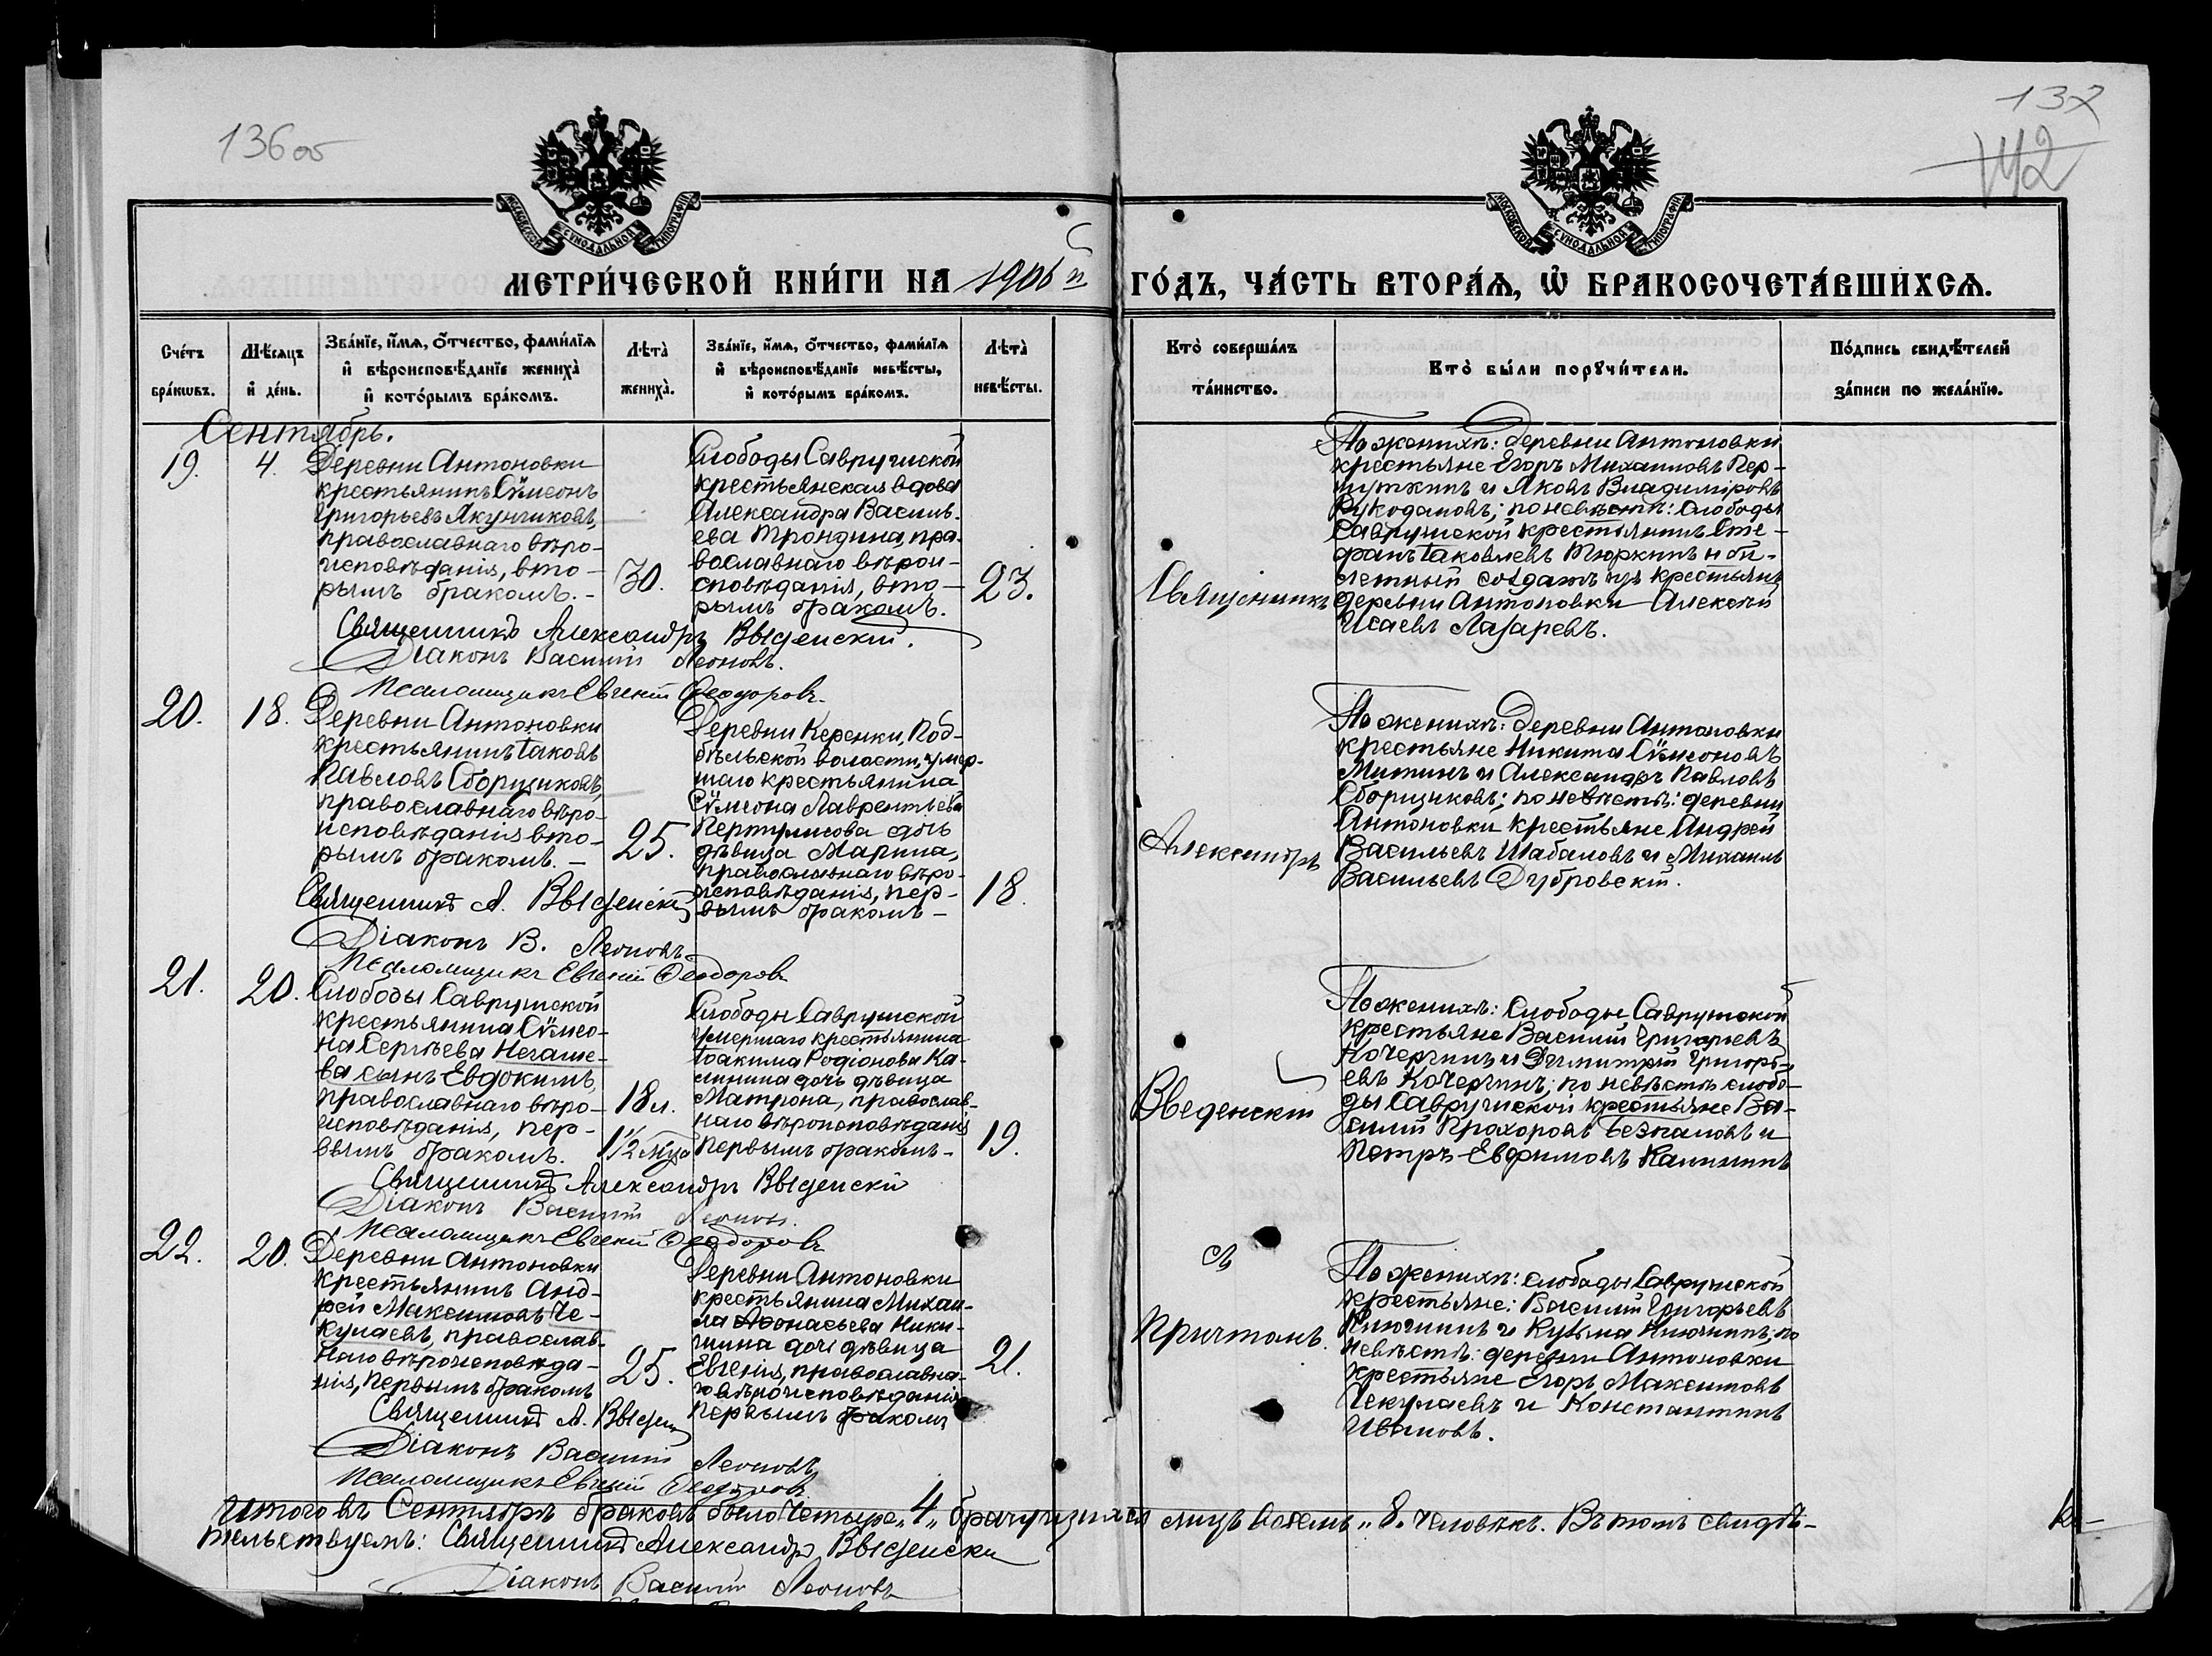 136 об
137
142
МОСКОВСКОЙ СѴНОДАЛЬНОЙ ТИПОГРАФІИ
МОСКОВСКОЙ СѴНОДАЛЬНОЙ ТИПОГРАФІИ
МЕТРИ́ЧЕСКОЙ КНИ́ГИ НА 1906 й ГО́ДЪ, ЧА́СТЬ ВТОРА́Ѧ, Ѽ БРАКОСОЧЕТА́ВШИХСѦ.
Сче́тъ бра́кѡвъ.
Мѣ́сѧцъ и҆ де́нь.
Зва́нїе, и҆́мѧ, ѻ҆́тчество, фами́лїѧ
и҆ вѣроисповѣ́данїе жениха̀
и҆ кото́рымъ бра́комъ.
Лѣта̀ жениха̀.
Зва́нїе, и҆́мѧ, ѻ҆́тчество, фами́лїѧ
и҆ вѣроисповѣ́данїе невѣ́сты,
и҆ кото́рымъ бра́комъ.
Лѣта̀ невѣ́сты.
Кто̀ соверша́лъ та́инство.
Кто̀ бы́ли порꙋчи́тели.
По́дпись свидѣ́телей
за́писи по жела́нїю.
Сентябрь.
19.
4.
Деревни Антоновки
крестьянинъ Сѵмеонъ
Григорьевъ Якунчиковъ,
православнаго вѣро-
исповѣданія, вто-
рымъ бракомъ. -
30.
Слободы Саврушской
крестьянская вдова
Александра Василь-
ева Трондина, пра-
вославнаго вѣрои-
сповѣданія, вто-
рымъ бракомъ.
23.
Священникъ
По женихѣ: деревни Антоновки
крестьяне Егоръ Михаиловъ Пер-
шуткинъ и Яковъ Владиміровъ
Рукодановъ; по невѣстѣ: слободы
Саврушской крестьянинъ Сте-
фанъ Іаковлевъ Тюркинъ и би-
летный солдатъ изъ крестьянъ
деревни Антоновки Алексѣй
Исаевъ Лазаревъ.
Священникъ Александръ Введенскій.
Діаконъ Василій Леоновъ.
Псаломщикъ Евгеній Ѳеодоровъ.
20.
18.
Деревни Антоновки
крестьянинъ Іаковъ
Павловъ Сборщиковъ,
православнаго вѣро-
исповѣданія вто-
рымъ бракомъ. -
25.
Деревни Керенки, Под-
бѣльской волости, умер-
шаго крестьянина
Сѵмеона Лаврентьева
дочь
дѣвица Марина,
православнаго вѣро-
исповѣданія, пер-
вымъ бракомъ -
18.
Александръ
По женихѣ: деревни Антоновки
крестьяне Никита Сѵмеоновъ
Митинъ и Александръ Павловъ
Сборщиковъ; по невѣстѣ: деревни
Антоновки крестьяне Андрей
Васильевъ Шабаловъ и Михаилъ
Васильевъ Дубровскій.
Священникъ А. Введенскій
Діаконъ В. Леоновъ.
Псаломщикъ Евгеній Ѳеодоровъ
21.
20.
Слободы Саврушской
крестьянина Сѵмео-
на Сергѣева Нечаше-
ва сынъ Евдокимъ,
православнаго вѣро-
исповѣданія, пер-
вымъ бракомъ.
18 л.
1 1/2 мѣсц
Слободы Саврушской
умершаго крестьянина
Іоакима Родіонова Ка-
линина дочь дѣвица
Матрона, православ-
наго вѣроисповѣданія
первымъ бракомъ -
19.
Введенскій
По женихѣ: слободы Саврушской
крестьяне Василій Григорьевъ
Кочергинъ и Димитрій Григорь-
евъ Кочергинъ; по невѣстѣ слобо-
ды Саврушской крестьяне Ва-
силій Прохоровъ Безпаловъ и
Петръ Евфимовъ Калининъ
Священникъ Александръ Введенскій
Діаконъ Василій Леоновъ.
Псаломщикъ Евгеній Ѳеодоровъ
22.
20.
Деревни Антоновки
крестьянинъ Анд-
рей Максимовъ Че-
кулаевъ, православ-
наго вѣроисповѣда-
нія, первымъ бракомъ
25.
Деревни Антоновки
крестьянина Михаи-
ла Аѳонасьева Ники-
шина дочь дѣвица
Евгенія, православна-
го вѣроисповѣданія
первымъ бракомъ
21.
съ
причтомъ.
По женихѣ: слободы Саврушской
крестьяне: Василій Григорьевъ
Ключинъ и Кузьма Ключинъ; по
невѣстѣ: деревни Антоновки
крестьяне Егоръ Максимовъ
Чекулаевъ и Константинъ
Ивановъ.
Священникъ А. Введен
Діаконъ Василій Леоновъ
Псаломщикъ Евгеній Ѳеодоровъ.
Итого въ Сентябрѣ браковъ было четыре „4„ брачущихся лицъ восемь „8„ человѣкъ. Въ томъ свидѣ-
тельствуемъ: Священникъ Александръ Введенскій
Діаконъ Василій Леоновъ